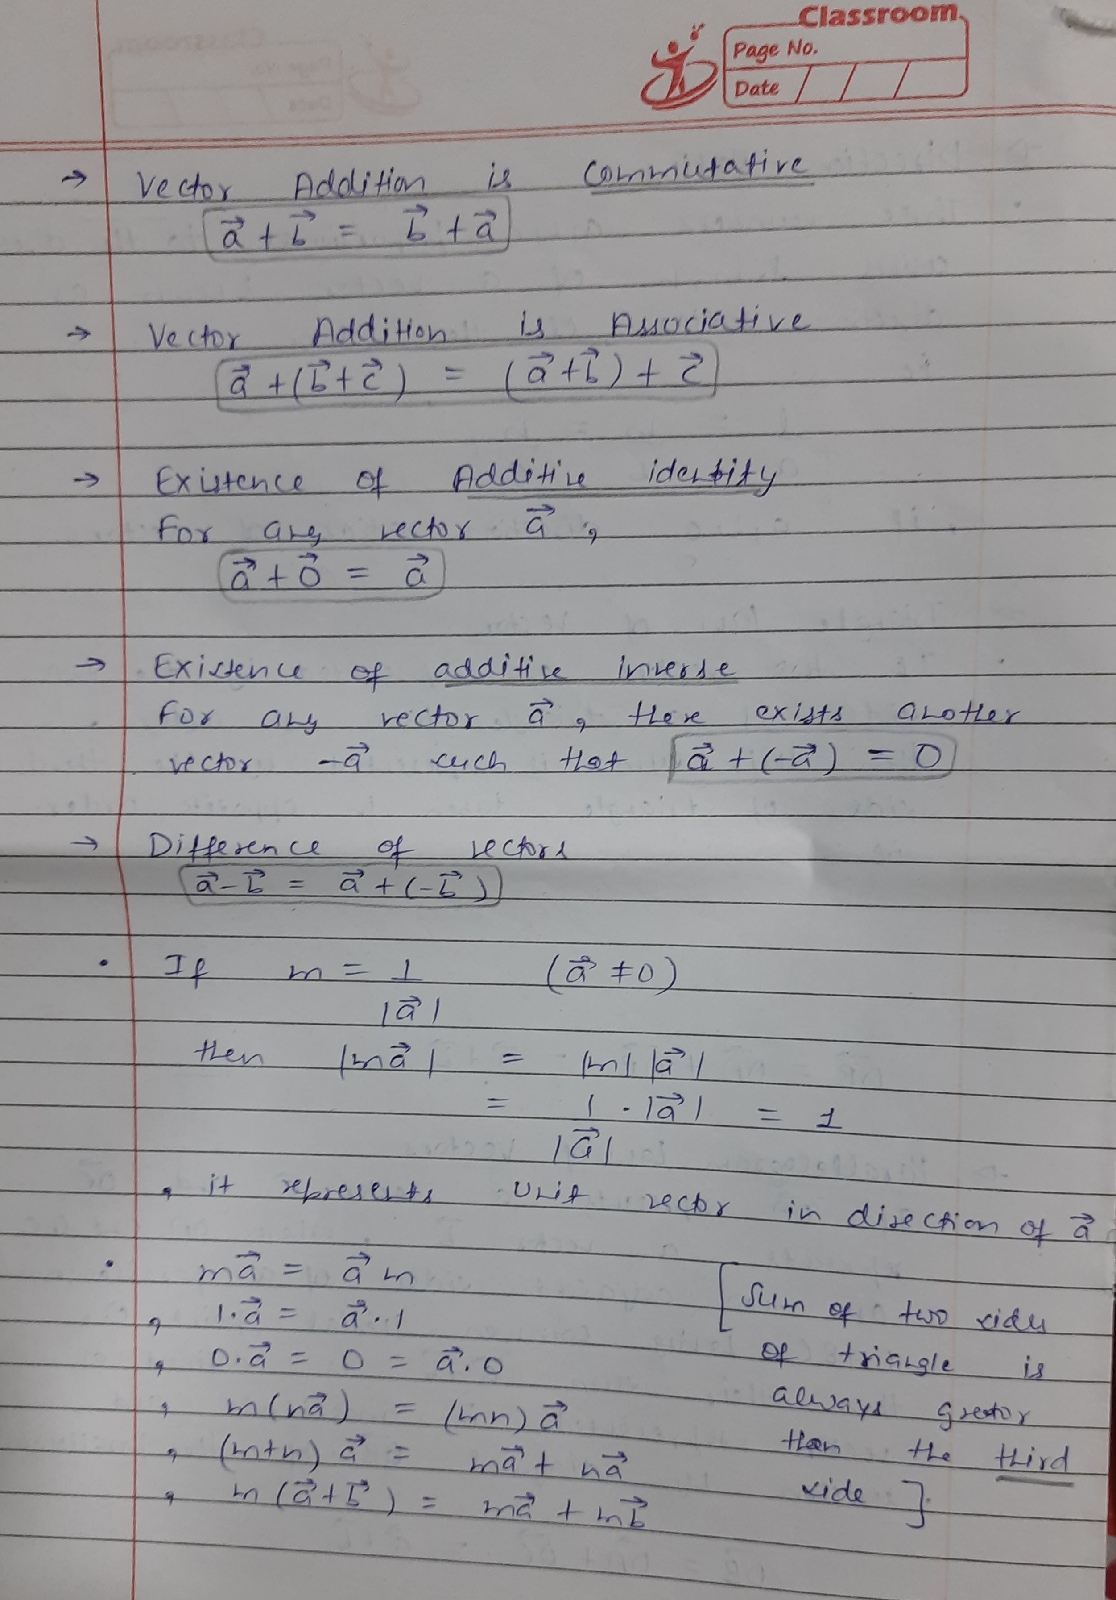 Classroom
Page No.
Date / / /
→ Vector Addition is Commutative
a⃗ + b⃗ = b⃗ + a⃗
→ Vector Addition is Associative
a⃗ + (b⃗ + c⃗) = (a⃗ + b⃗) + c⃗
→ Existence of Additive identity
For any vector a⃗ ,
a⃗ + 0⃗ = a⃗
→ Existence of additive inverse
For any vector a⃗ , there exists another
vector -a⃗ such that a⃗ + (-a⃗) = 0
→ Difference of vectors
a⃗ - b⃗ = a⃗ + (-b⃗)
• If m = 1 (a⃗ ≠ 0)
|a⃗|
then |ma⃗| = |m| |a⃗|
= 1 . |a⃗| = 1
|a⃗|
, it represents unit vector in direction of a⃗
• ma⃗ = a⃗ m
, 1.a⃗ = a⃗.1
, 0.a⃗ = 0 = a⃗.0
, m(na⃗) = (mn) a⃗
, (m+n) a⃗ = ma⃗ + na⃗
, m(a⃗+b⃗) = ma⃗ + mb⃗
[Sum of two sides
of triangle is
always greator
than the third
side]